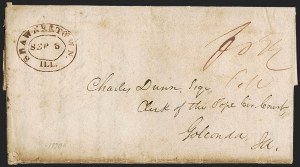 SHAWNEETOWN.
SEP 5
ILL.
Charles Dunn, Esqr
Clerk of the Pope Cir. Court
Golconda,
Ill.